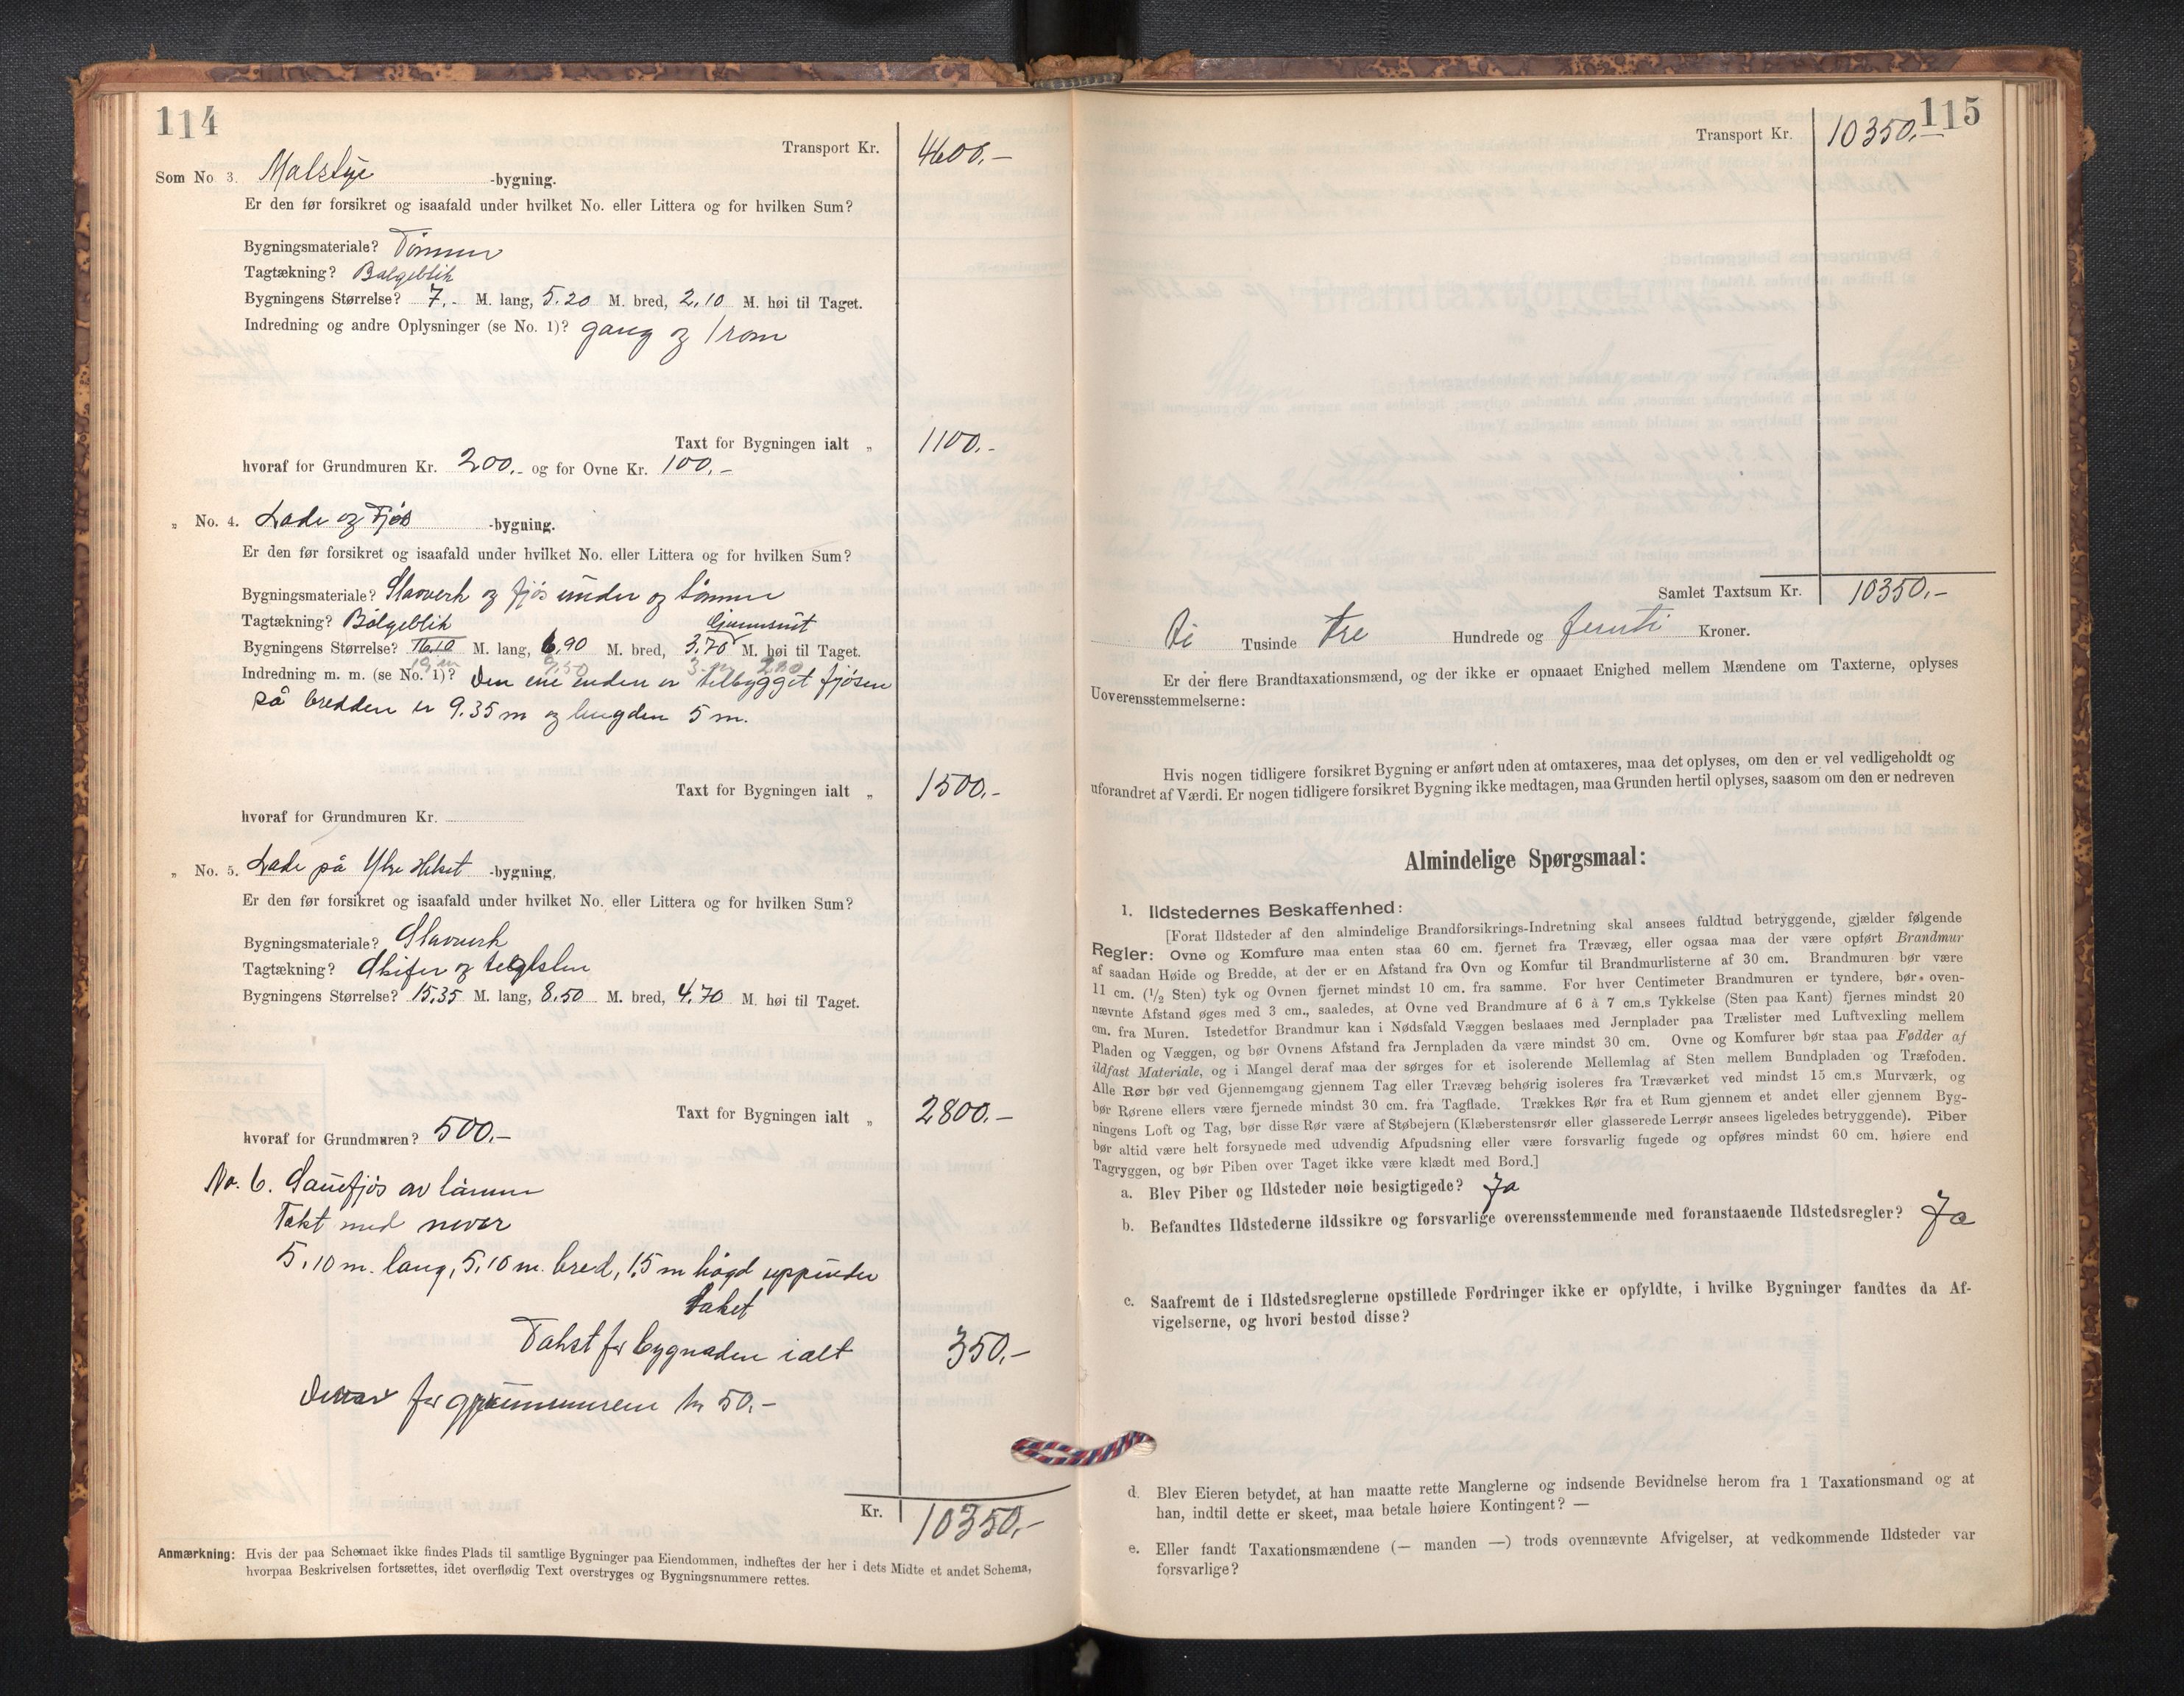 114
Transport Kr. 4600.-
Som No 3. Matstye -bygning.
Er den før forsikret og isaafald under hvilket No. eller Littera og for hvilken Sum?
Bygningsmateriale? Tømmer
Tagtækning? Bølgeblik
Bygningens Størrelse? 7,- M. lang, 5.20 M. bred, 2,10 M. høi til Taget.
Indredning og andre Oplysninger (se No. 1)? gang og 1 rom
Taxt for Bygningen ialt „ 1100.-
hvoraf for Grundmuren Kr. 200.- og for Ovne Kr. 100,-
„ No. 4. Lade og Fjøs -bygning.
Er den før forsikret og isaafald under hvilket No. eller Littera og for hvilken Sum?
Bygningsmateriale? Stavverk og fjøs under og tømmer
Tagtækning? Bølgeblik
Bygningens Størrelse? 16.10 M. lang, 6,90 M. bred, 3,70 M. høi til Taget.
Indredning m. m. (se No. 1)? Den ene enden er tilbygget fjøsen
på bredden er 9.35 m og lengden 5 m.
Taxt for Bygningen ialt „ 1500.-
hvoraf for Grundmuren Kr.
„ No. 5. Lade på Ytre Helset -bygning.
Er den før forsikret og isaafald under hvilket No. eller Littera og for hvilken Sum?
Bygningsmateriale? Stavverk
Tagtækning? Skifer og teglsten
Bygningens Størrelse? 15,35 M. lang, 8,50 M. bred, 4,70 M. høi til Taget.
Taxt for Bygningen ialt „ 2800.-
hvoraf for Grundmuren? 500.-
No. 6. Sauefjøs av tømmer
Takt med never
5,10 m. lang, 5,10 m. bred, 1,5 m høgd uppunder
taket
Takst for bygnaden ialt 350.-
Derav for grunnmuren kr 50.-
Kr. 10350.-
Anmærkning: Hvis der paa Schemaet ikke findes Plads til samtlige Bygninger paa Eiendommen, indheftes der her i dets Midte et andet Schema,
hvorpaa Beskrivelsen fortsættes, idet overflødig Text overstryges og Bygningsnummere rettes.
115
Transport Kr. 10350.-
Samlet Taxtsum Kr. 10350.-
Ti Tusinde tre Hundrede og femti Kroner.
Er der flere Brandtaxationsmænd, og der ikke er opnaaet Enighed mellem Mændene om Taxterne, oplyses
Uoverensstemmelserne:
Hvis nogen tidligere forsikret Bygning er anført uden at omtaxeres, maa det oplyses, om den er vel vedligeholdt og
uforandret af Værdi. Er nogen tidligere forsikret Bygning ikke medtagen, maa Grunden hertil oplyses, saasom om den er nedreven
Almindelige Spørgsmaal:
1. Ildstedernes Beskaffenhed:
[Forat Ildsteder af den almindelige Brandforsikrings-Indretning skal ansees fuldtud betryggende, gjælder følgende
Regler: Ovne og Komfure maa enten staa 60 cm. fjernet fra Trævæg, eller ogsaa maa der være opført Brandmur
af saadan Høide og Bredde, at der er en Afstand fra Ovn og Komfur til Brandmurlisterne af 30 cm. Brandmuren bør være
11 cm. (1/2 Sten) tyk og Ovnen fjernet mindst 10 cm. fra samme. For hver Centimeter Brandmuren er tyndere, bør oven-
nævnte Afstand øges med 3 cm., saaledes, at Ovne ved Brandmure af 6 à 7 cm.s Tykkelse (Sten paa Kant) fjernes mindst 20
cm. fra Muren. Istedetfor Brandmur kan i Nødsfald Væggen beslaaes med Jernplader paa Trælister med Luftvexling mellem
Pladen og Væggen, og bør Ovnens Afstand fra Jernpladen da være mindst 30 cm. Ovne og Komfurer bør staa paa Fødder af
ildfast Materiale, og i Mangel deraf maa der sørges for et isolerende Mellemlag af Sten mellem Bundpladen og Træfoden.
Alle Rør bør ved Gjennemgang gjennem Tag eller Trævæg behørig isoleres fra Træværket ved mindst 15 cm.s Murværk, og
bør Rørene ellers være fjernede mindst 30 cm. fra Tagflade. Trækkes Rør fra et Rum gjennem et andet eller gjennem Byg-
ningens Loft og Tag, bør disse Rør være af Støbejern (Klæberstensrør eller glasserede Lerrør ansees ligeledes betryggende). Piber
bør altid være helt forsynede med udvendig Afpudsning eller være forsvarlig fugede og opføres mindst 60 cm. høiere end
Tagryggen, og bør Piben over Taget ikke være klædt med Bord.]
a. Blev Piber og Ildsteder nøie besigtigede? Ja
b. Befandtes Ildstederne ildssikre og forsvarlige overensstemmende med foranstaaende Ildstedsregler? Ja
c. Saafremt de i Ildstedsreglerne opstillede Fordringer ikke er opfyldte, i hvilke Bygninger fandtes da Af-
vigelserne, og hvori bestod disse?
d. Blev Eieren betydet, at han maatte rette Manglerne og indsende Bevidnelse herom fra 1 Taxationsmand og at
han, indtil dette er skeet, maa betale høiere Kontingent? —
e. Eller fandt Taxationsmændene (— manden —) trods ovennævnte Afvigelser, at vedkommende Ildsteder var
forsvarlige?